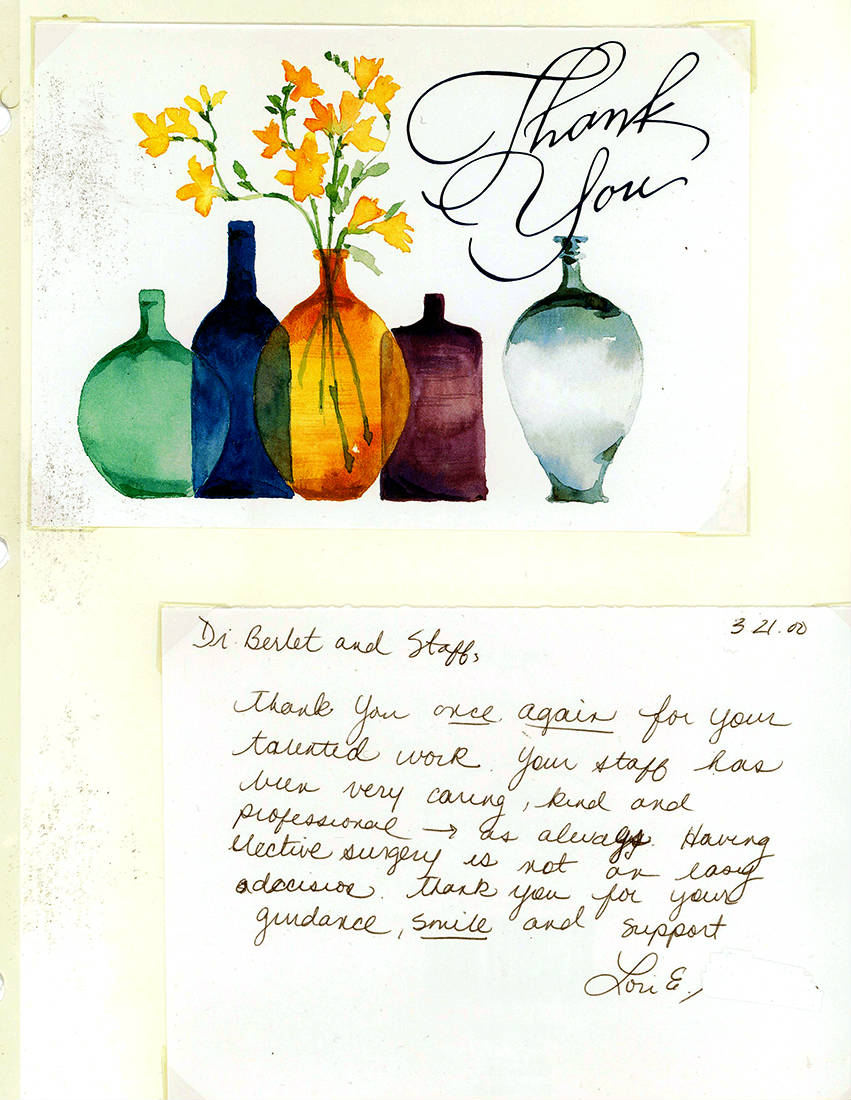 Thank
You
Dr. Berlet and Staff,
3 21.00
Thank You once again for your
talented work. Your staff has
been very caring, kind and
professional → as always. Having
elective surgery is not an easy
decision. Thank you for your
guidance, smile and support
Lori E.,